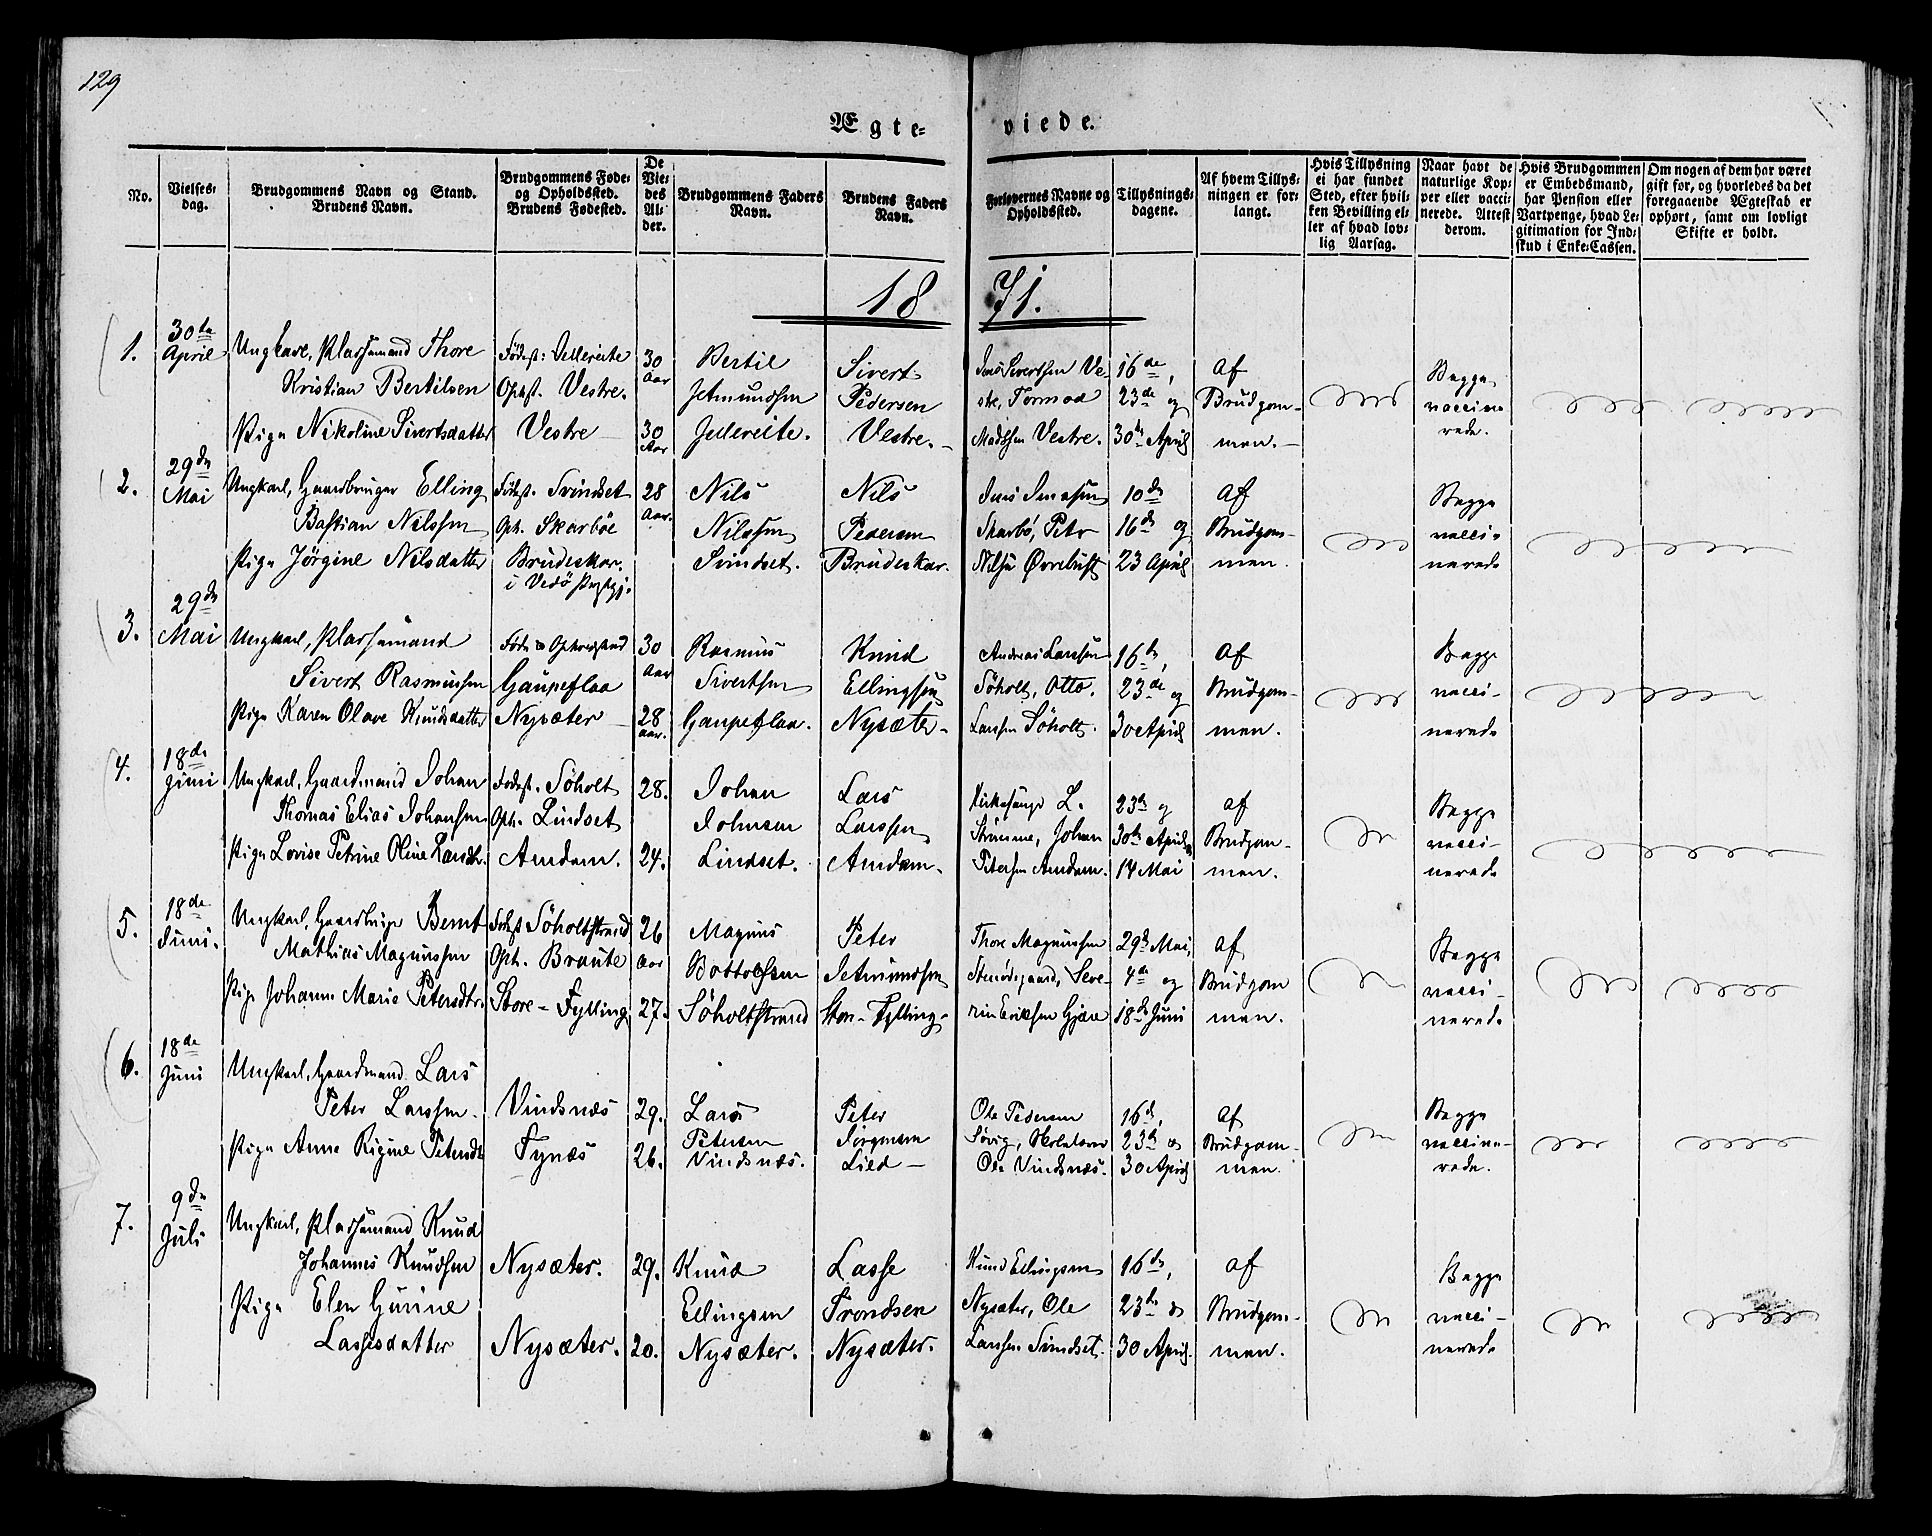 129
Ægte-
viede.
No.
Vielses-
dag.
Brudgommens Navn og Stand.
Brudens Navn.
Brudgommens Føde-
og Opholdssted.
Brudens Fødested.
De
Vie-
des
Al-
der.
Brudgommens Faders
Navn.
Brudens Faders
Navn.
Forlovernes Navne og
Opholdssted.
Tillysnings-
dagene.
Af hvem Tillys-
ningen er for-
langt.
Hvis Tillysning
ei har fundet
Sted, efter hvil-
ken Bevilling el-
ler af hvad lov-
lig Aarsag.
Naar havt de
naturlige Kop-
per eller vacci-
nerede. Attest
derom.
Hvis Brudgommen
er Embedsmand,
har Pension eller
Vartpenge, hvad Le-
gitimation for Ind-
skud i Enke-Cassen.
Om nogen af dem har været
gift før, og hvorledes da det
foregaaende Ægteskab er
ophørt, samt om lovligt
Skifte er holdt.
18 71.
1.
30te
April
Ungkarl, Pladsemand Thore
Kristian Bertilsen
Pige Nikoline Sivertsdatter
Fødest: Jellereite
Ophst. Vestre.
Vestre
30
Aar
30
Aar
Bertil
Jetmundsen
Jellereite.
Sivert
Pedersen
Vestre.
Jens Sivertsen Ve-
stre, Tormod
Madssen Vestre.
16de,
23de og
30te April
Af
Brudgom-
men.
Begge
vaccine
rede.
2.
29de
Mai
Ungkarl, Gaardbruger Elling
Bastian Nilssen
Pige Jörgine Nilsdatter
Fødest. Svindset
Oph. Skarbøe
Brudeskar.
i Vedö Præstegj.
28
Aar.
Nils
Nilssen
Svindset.
Nils
Pedersen
Brudeskar.
Jens Jensen
Skarbö, Petr
Nilsen Øvrelust
10de
16de og
23 April
Af
Brudgom-
men.
Begge
vacci-
nerede
3.
29de
Mai
Ungkarl, Pladsemand
Sivert Rasmussen
Pige Karen Olave Knudsdatter
Føde & Opholdssted
Gaupeflaa
Nysæter
30
Aar
28
Aar.
Rasmus
Sivertsen
Gaupeflaa.
Knud
Ellingsen
Nysæter.
Andreas Larssen
Söholt, Otto
Larssen Söholt.
16de,
23de og
30 April
Af
Brudgom-
men.
Begge
vacci-
nerede
4.
18de
Juni
Ungkarl, Gaardmand Johan
Thomas Elias Johansen
Pige Lovise Petrine Oline Larsdtr.
Fødest. Söholt
Oph. Lindset
Amdam.
28.
24.
Johan
Johnsen
Lindset.
Lars
Larssen
Amdam.
Kirkesanger L.
Strømme, Johan
Petersen Amdam.
23de og
30te April
14 Mai
af
Brudgom-
men.
Begge
vacci-
nerede
5.
18de
Juni.
Ungkarl, Gaardbruger Bernt
Mathias Magnussen
Pige Johanne Marie Petersdtr.
Fødest Söholtstrand
Oph. Braute
Store-Fylling
26
Aar
27.
Magnus
Bottolfsen
Söholtstrand
Peter
Jetmundsen
Store-Fylling
Thore Magnussen
Stenødegaard, Seve-
rin Eriksen Gjære
29de Mai,
4de og
18de Juni
af
Brudgom
men.
Begge
vacci-
nerede
6.
18de
Juni
Ungkarl, Gaardmand Lars
Peter Larssen.
Pige Anne Rigine Petersdtr
Vindsnæs
Fynæs
29.
26.
Lars
Petersen
Vindsnæs.
Peter
Jørgensen
Lied
Ole Pedersen
Ole Vindsnæs.
16de,
23de &
30 April
Af
Brudgom-
men.
Begge
vaccine-
rede.
7.
9de
Juli
Ungkarl, Pladsemand Knud
Johannes Knudsen
Pige Elen Gurine
Lassesdatter
Nysæter.
Nysæter.
29.
20.
Knud
Ellingsen
Nysæter.
Lasse
Trondsen
Nysæter.
Knud Ellingsen
Nysæter, Ole
Larssen Svindset.
16de,
23de &
30 April.
af
Brudgom-
men.
Begge
vacci-
nerede